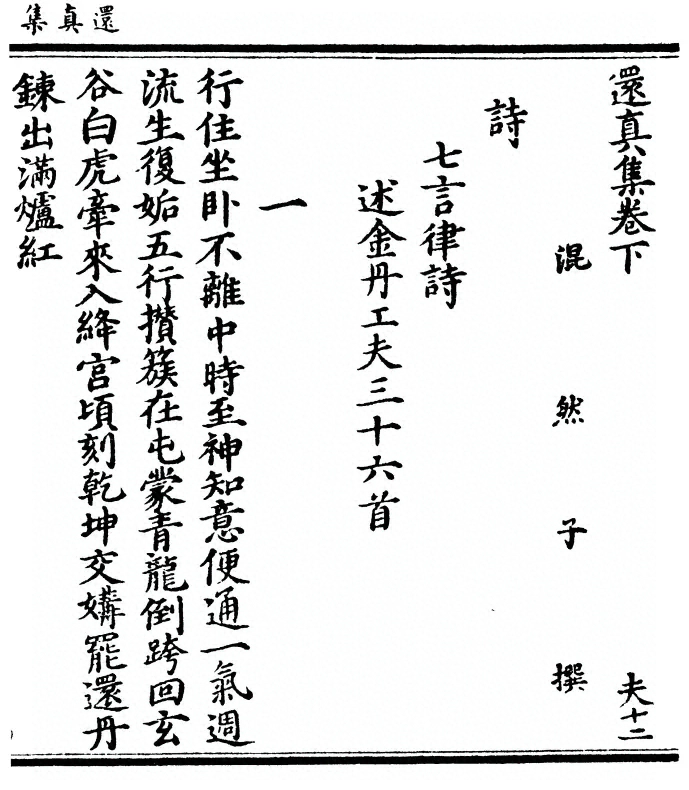 還真集
還真集卷下
夫十二
混然子撰
詩
七言律詩
述金丹工夫三十六首
一
行住坐卧不離中時至神知意便通一氣週
流生復姤五行攢簇在屯蒙青龍倒跨回玄
谷白虎牽來入絳宮頃刻乾坤交媾罷還丹
鍊出滿爐紅